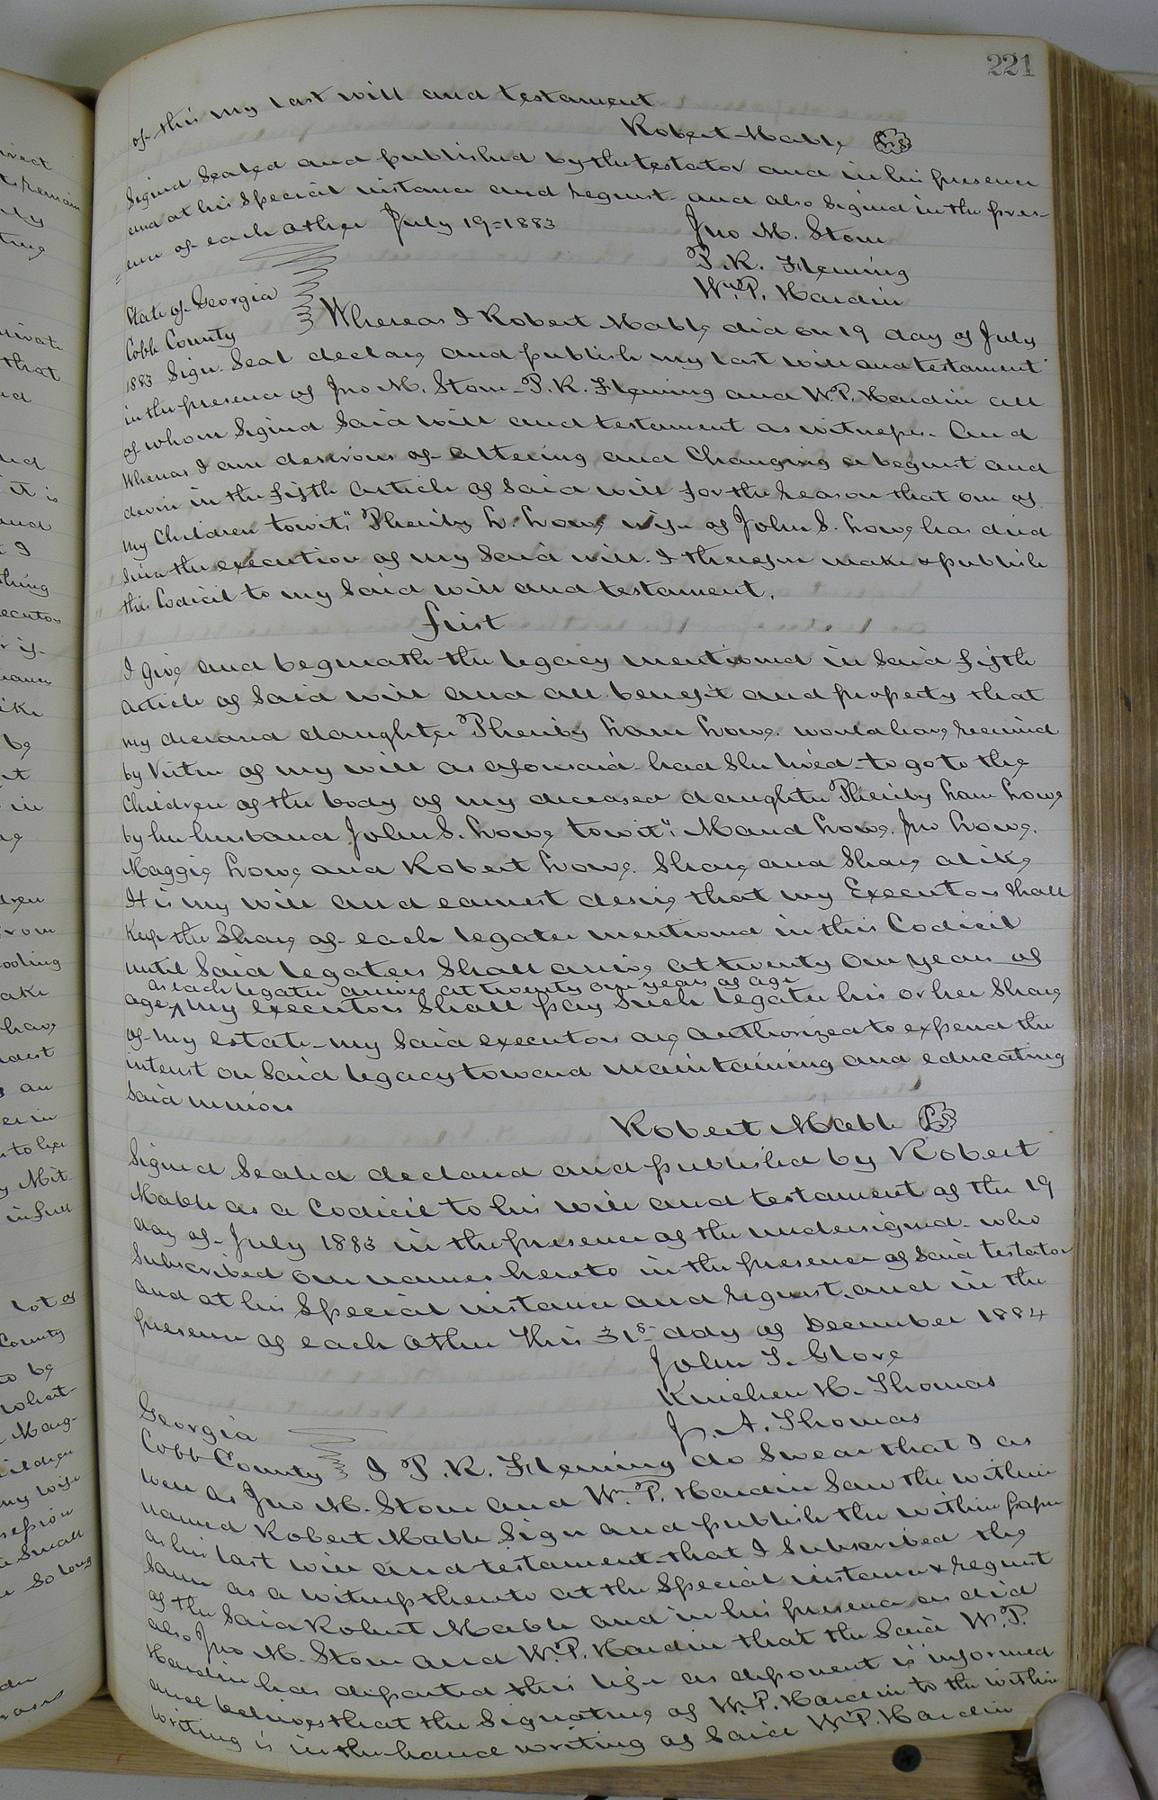 221
of this my last will and testament
Robert Mable L.S.
Signed Sealed and published by the testator and in his presence
and at his Special instance and request and also Signed in the pres-
=ence of each other July 19=1883
Jno M. Stone
P. R. Fleming
Wm P. Hardin
State of Georgia
Cobb County
Whereas I Robert Mable did on 19 day of July
1883 Sign Seal declare and publish my last will and testament
in the presence of Jno M. Stone P. R. Fleming and W.P. Hardin all
of whom Signed Said will and testament as witnesses. And
Whereas I am desirous of altering and Changing a bequest and
devise in the fifth article of Said will for the reason that one of
my Children towit" Pheriby L. Lowe wife of John S. Lowe has died
Since the execution of my Said will. I therefore make & publish
this Codicil to my Said will and testament.
First
I give and bequeath the legacy mentioned in Said fifth
article of Said will and all benefit and property that
my deceased daughter Pheriby Lowe would have received
by Virtue of my will as aforesaid had She lived to go to the
Children of the body of my deceased daughter Pheriby Lowe
by her husband John S. Lowe towit", Maud Lowe, Jno Lowe,
Maggie Lowe and Robert Lowe. Share and Share alike
It is my will and earnest desire that my Executors Shall
Keep the Share of each legatee mentioned in this Codicil
until Said legatees Shall arrive at twenty one years of
as each legatee arrives at twenty one years of age
age, my executors Shall pay Such legatee his or her Share
of my estate my Said executors are authorized to expend the
interest on Said legacy toward maintaining and educating
Said minors
Robert Mable L.S.
Signed Sealed declared and published by Robert
Mable as a Codicil to his will and testament of the 19
day of July 1883 in the presence of the undersigned who
Subscribed our names hereto in the presence of Said testator
and at his Special instance and request, and in the
presence of each other this 31st day of December 1884
John T. Glove
Kinchen H. Thomas
J. A. Thomas
Georgia
Cobb County I P. R. Fleming do Swear that I as
well as Jno M. Stone and Wm. P. Hardin Saw the within
named Robert Mable Sign and publish the within paper
as his last will and testament that I Subscribed the
Same as a witness thereto at the Special instance & request
of the Said Robert Mable and in his presence as did
also Jno M. Stone and W.P. Hardin that the Said W.P.
Hardin has departed this life as deponent is informed
and believes that the Signature of W.P. Hardin to the within
writing is in the hand writing of Said W.P. Hardin